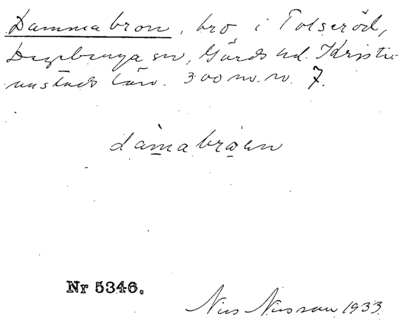 Dammabron, bro i Tolseröd,
Degeberga sn, Gärds hd. Kristi-
anstads län. 300 m. n. 7.
dàmabråen
Nr 5346.
Nils Nilsson 1933.